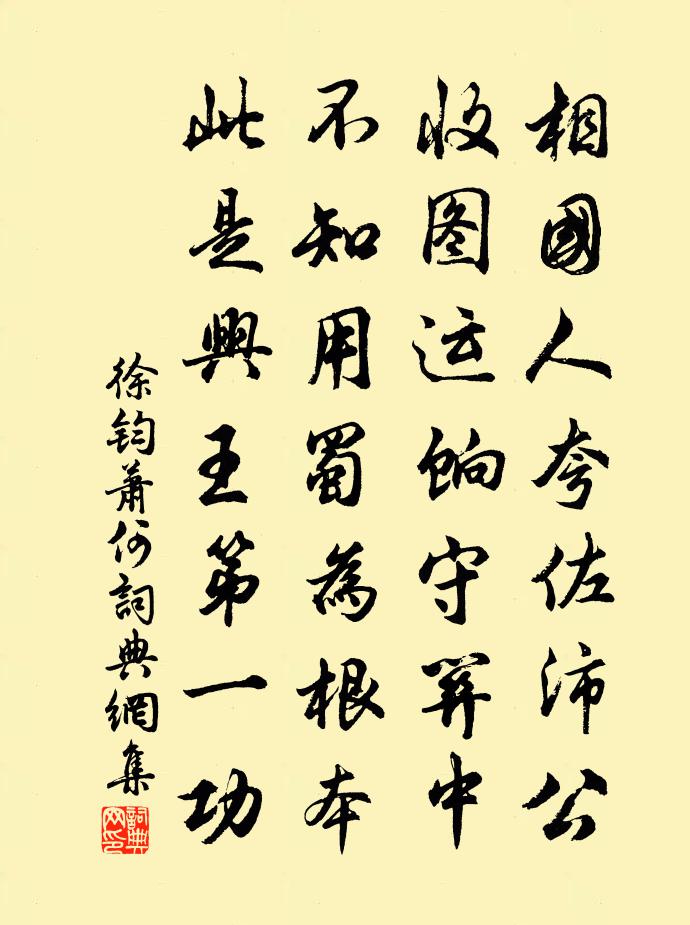 相國人夸佐沛公
收图运餉守關中
不知用蜀為根本
此是興王第一功
徐钧蕭何詞典網集
詞典網印